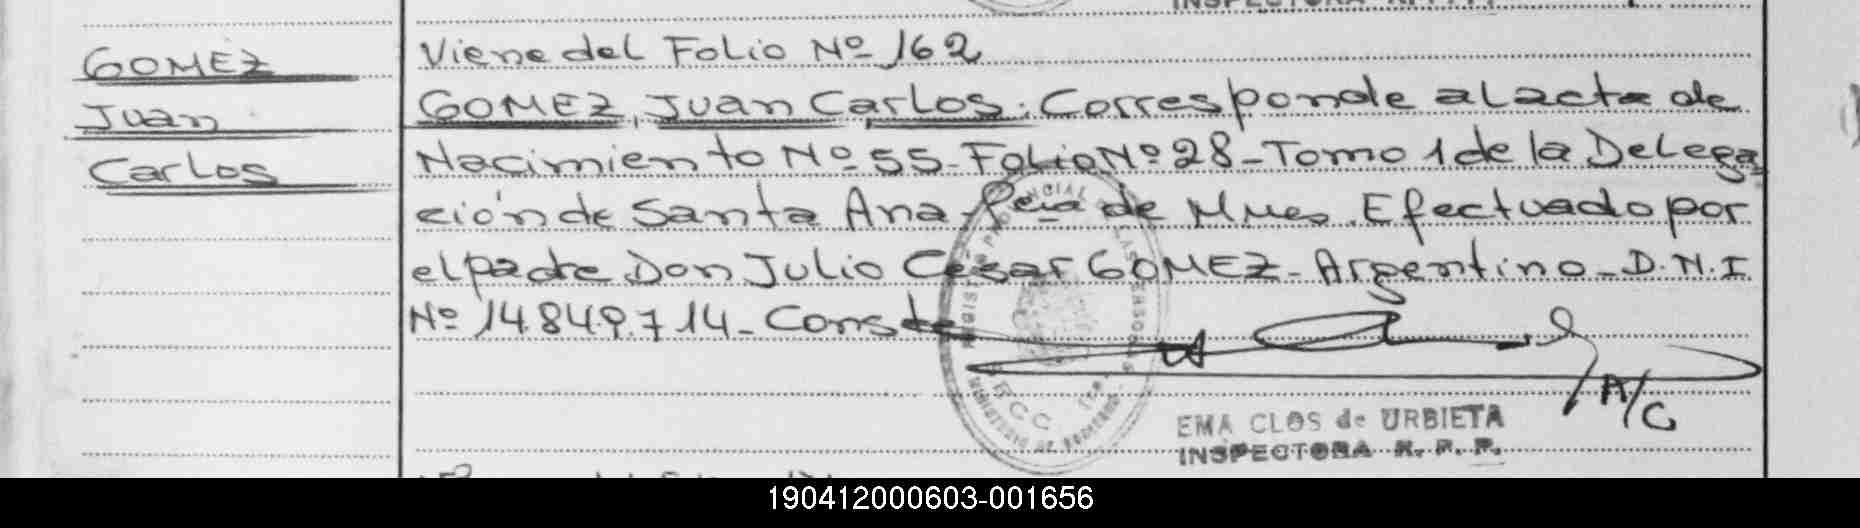 GOMEZ
Juan
Carlos
Viene del Folio Nº 162
GOMEZ, Juan Carlos. Corresponde al acta de
Nacimiento Nº 55 - Folio Nº 28 - Tomo 1 de la Delega
ción de Santa Ana - Pcia de Mnes. Efectuado por
el padre Don Julio Cesar GOMEZ - Argentino - D.N.I
Nº 14.849.714 - Conste
A/C
EMA CLOS de URBIETA
INSPECTORA R. P. P.
190412000603-001656